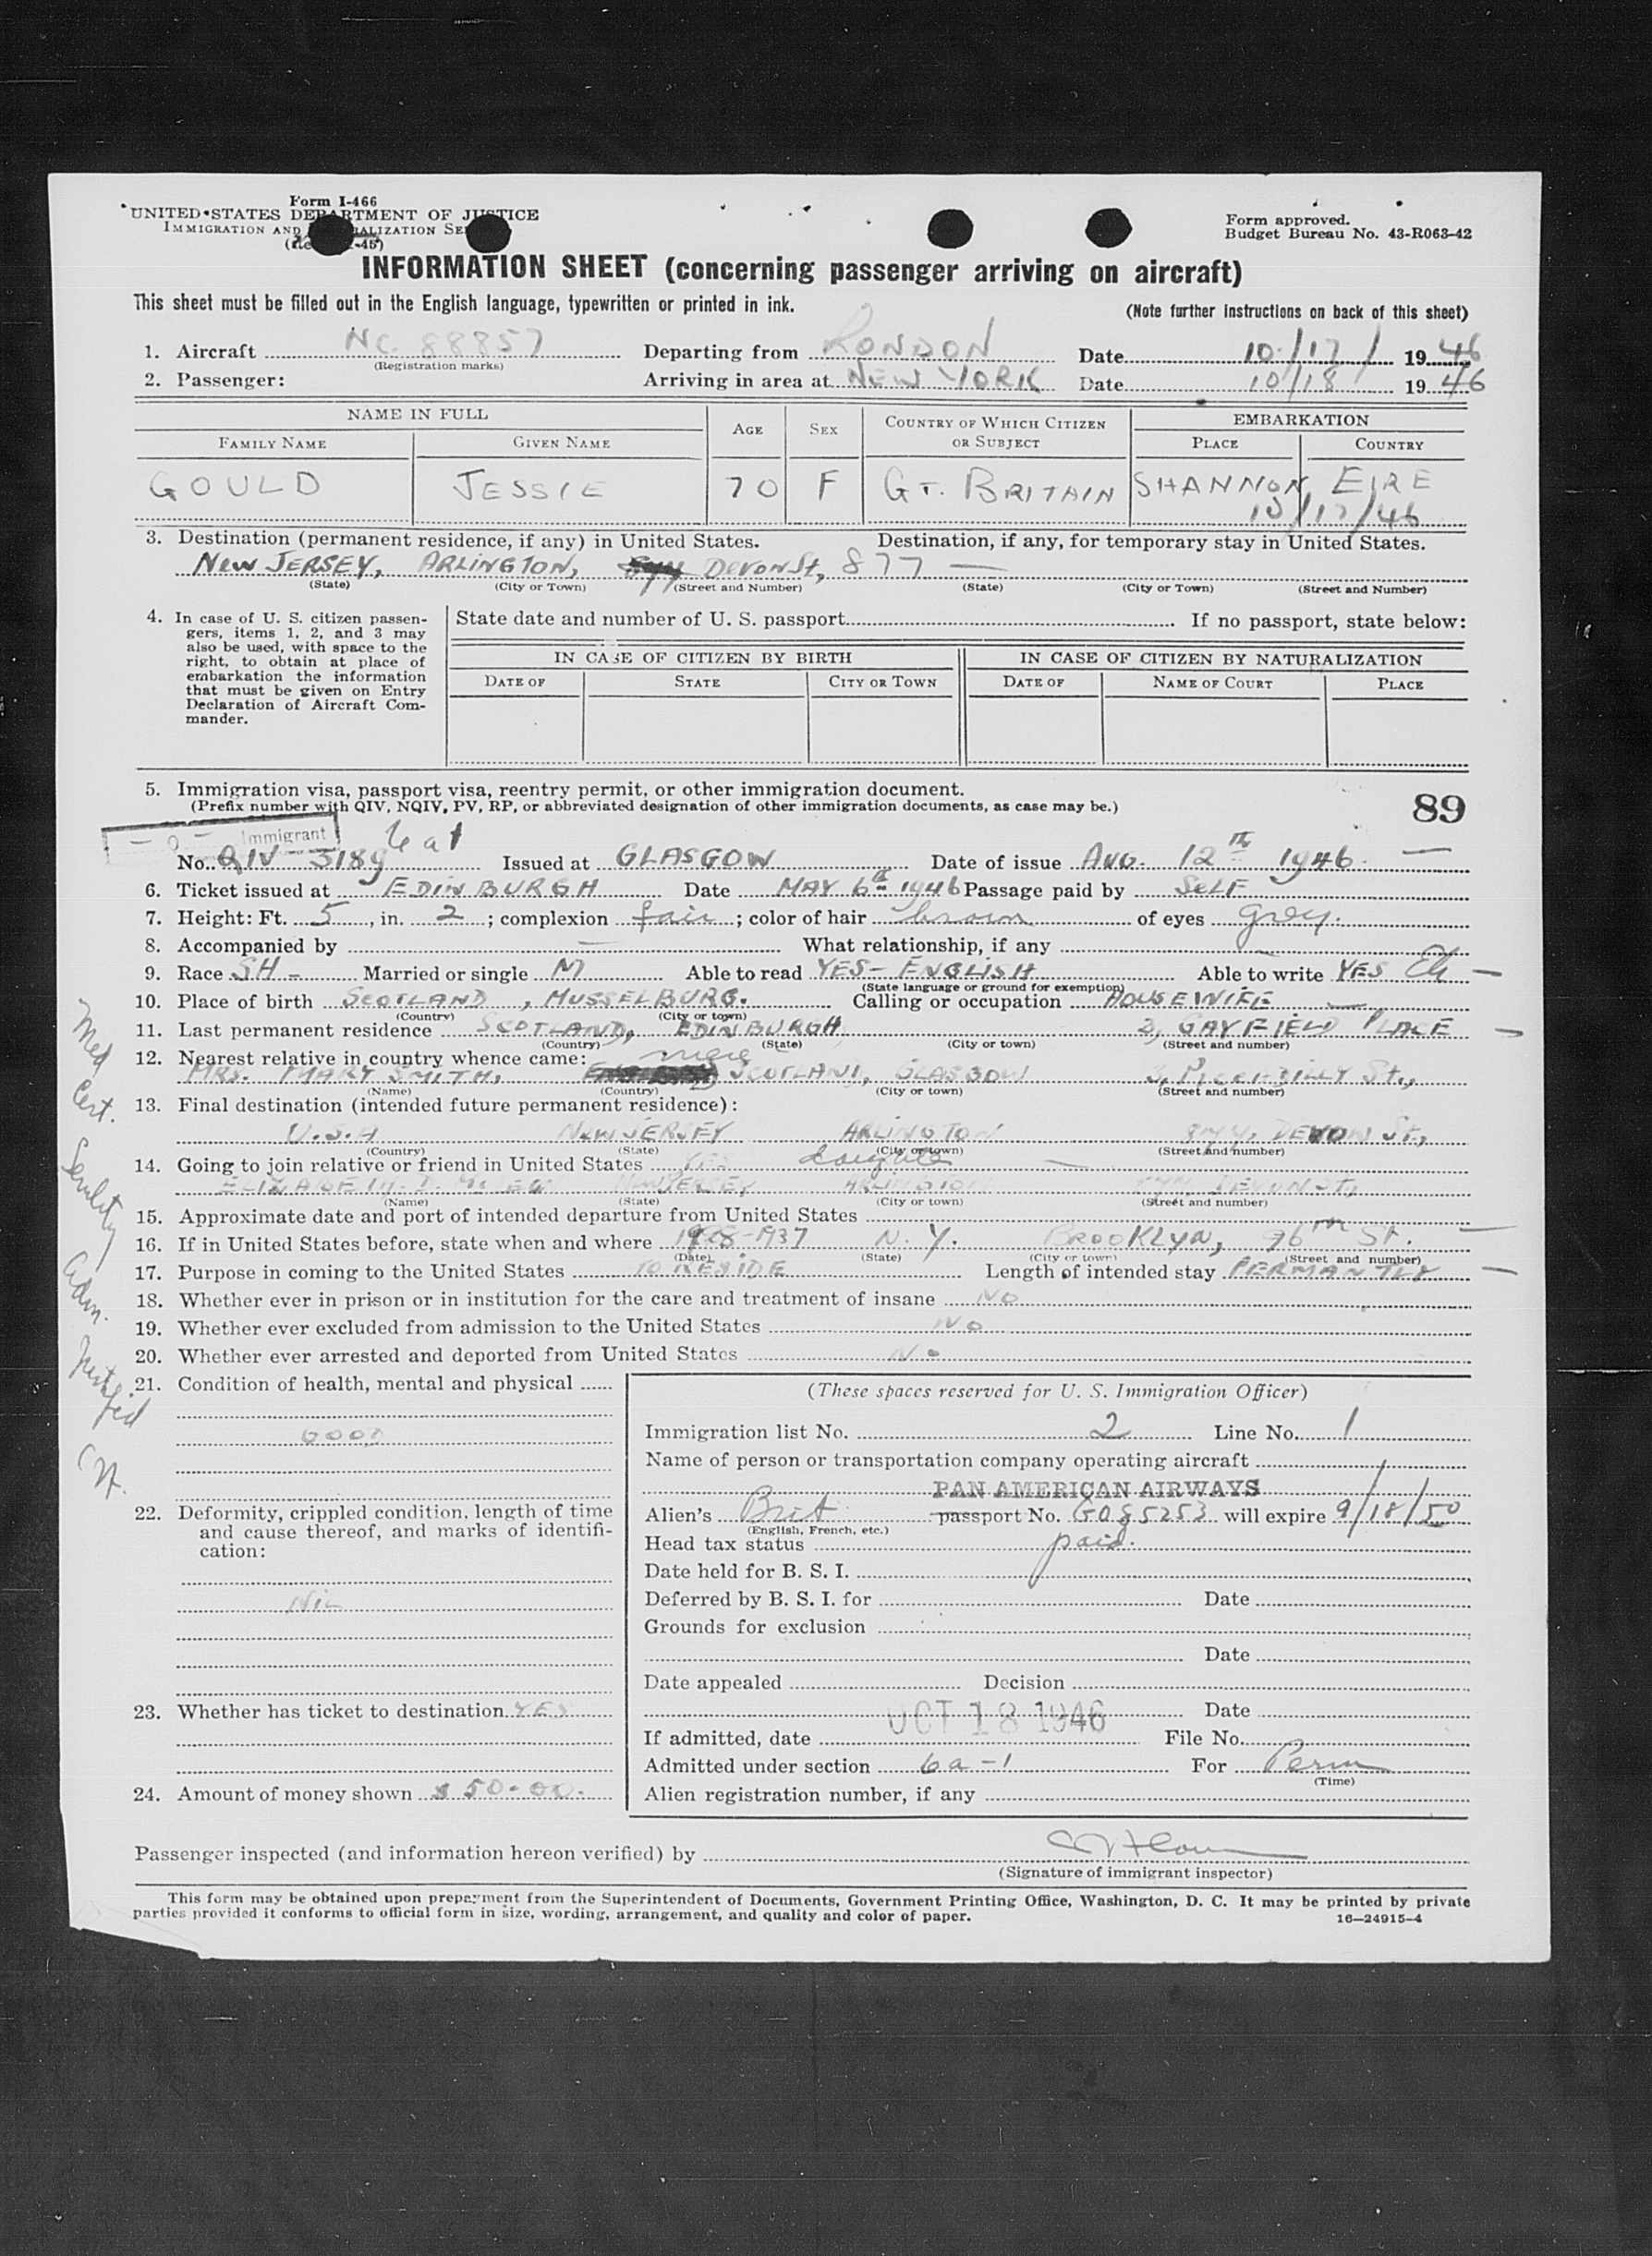 Form I-466
UNITED STATES DEPARTMENT OF JUSTICE
IMMIGRATION AND NATURALIZATION SERVICE
-45)
Form approved.
Budget Bureau No. 43-R063-42
INFORMATION SHEET (concerning passenger arriving on aircraft)
This sheet must be filled out in the English language, typewritten or printed in ink.
(Note further instructions on back of this sheet)
1. Aircraft NC. 88857 Departing from LONDON Date 10/17/ 1946
(Registration marks)
2. Passenger: Arriving in area at NEW YORK Date 10/18 1946
NAME IN FULL AGE SEX COUNTRY OF WHICH CITIZEN OR SUBJECT EMBARKATION
FAMILY NAME GIVEN NAME PLACE COUNTRY
GOULD JESSIE 70 F GT. BRITAIN SHANNON, EIRE
10/17/46
3. Destination (permanent residence, if any) in United States. Destination, if any, for temporary stay in United States.
NEW JERSEY, ARLINGTON, DEVON St, 877 —
(State) (City or Town) (Street and Number) (State) (City or Town) (Street and Number)
4. In case of U. S. citizen passen-
gers, items 1, 2, and 3 may
also be used, with space to the
right, to obtain at place of
embarkation the information
that must be given on Entry
Declaration of Aircraft Com-
mander.
State date and number of U. S. passport If no passport, state below:
IN CASE OF CITIZEN BY BIRTH IN CASE OF CITIZEN BY NATURALIZATION
DATE OF STATE CITY OR TOWN DATE OF NAME OF COURT PLACE
5. Immigration visa, passport visa, reentry permit, or other immigration document.
(Prefix number with QIV, NQIV, PV, RP, or abbreviated designation of other immigration documents, as case may be.)
89
Immigrant 6 a 1
No. QIV-3189 Issued at GLASGOW Date of issue AUG. 12th 1946. —
6. Ticket issued at EDINBURGH Date MAY 6th 1946 Passage paid by SELF
7. Height: Ft. 5, in. 2; complexion fair; color of hair brown of eyes grey.
8. Accompanied by — What relationship, if any —
9. Race SH - Married or single M Able to read YES- ENGLISH Able to write YES —
(State language or ground for exemption)
10. Place of birth SCOTLAND, MUSSELBURG. Calling or occupation HOUSEWIFE —
(Country) (City or town)
11. Last permanent residence SCOTLAND, EDINBURGH 3, GAYFIELD PLACE —
(Country) (State) (City or town) (Street and number)
12. Nearest relative in country whence came: niece
MRS. MARY SMITH, SCOTLAND, GLASGOW 3, PICCADILLY St.,
(Name) (Country) (City or town) (Street and number)
13. Final destination (intended future permanent residence):
U.S.A NEW JERSEY ARLINGTON DEVON St.,
(Country) (State) (City or town) (Street and number)
14. Going to join relative or friend in United States YES daughter —
NEW JERSEY ARLINGTON DEVON ST,
(Name) (State) (City or town) (Street and number)
15. Approximate date and port of intended departure from United States
16. If in United States before, state when and where 1928-1937 N. Y. BROOKLYN, 96th St. —
(Date) (State) (City or town) (Street and number)
17. Purpose in coming to the United States TO RESIDE Length of intended stay PERMANTLY —
18. Whether ever in prison or in institution for the care and treatment of insane NO
19. Whether ever excluded from admission to the United States No
20. Whether ever arrested and deported from United States No
Med
Cert.
Senility
Adm.
justified
21. Condition of health, mental and physical
GOOD
22. Deformity, crippled condition, length of time
and cause thereof, and marks of identifi-
cation:
NIL
23. Whether has ticket to destination YES
24. Amount of money shown $ 50-00.
(These spaces reserved for U. S. Immigration Officer)
Immigration list No. 2 Line No. 1
Name of person or transportation company operating aircraft
PAN AMERICAN AIRWAYS
Alien's Brit passport No. G085253 will expire 9/18/50
(English, French, etc.)
Head tax status paid.
Date held for B. S. I.
Deferred by B. S. I. for Date
Grounds for exclusion
Date
Date appealed Decision
OCT 18 1946 Date
If admitted, date File No.
Admitted under section 6a-1 For Perm
(Time)
Alien registration number, if any
Passenger inspected (and information hereon verified) by
(Signature of immigrant inspector)
This form may be obtained upon prepayment from the Superintendent of Documents, Government Printing Office, Washington, D. C. It may be printed by private
parties provided it conforms to official form in size, wording, arrangement, and quality and color of paper.
16—24915-4